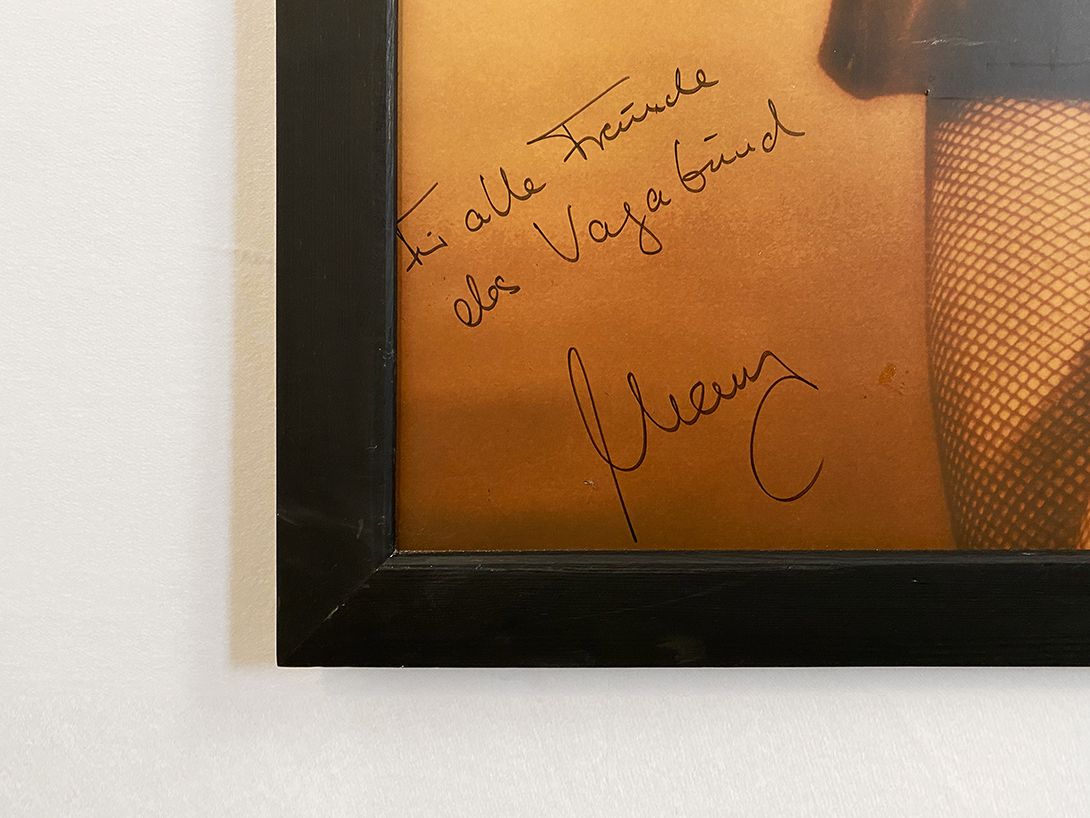 Für alle Freunde
des Vagabund